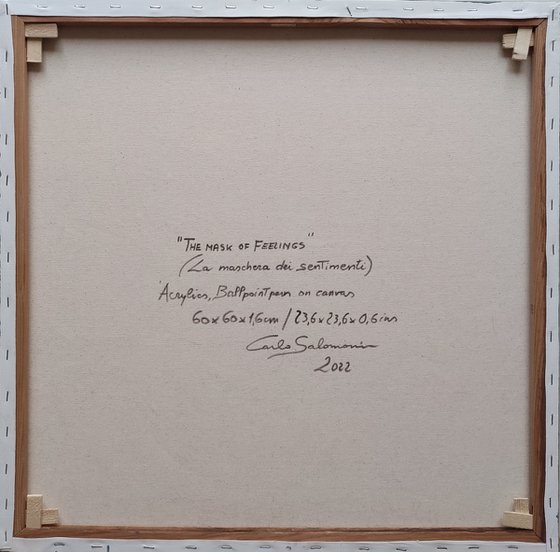 "THE MASK OF FEELINGS"
(La maschera dei sentimenti)
Acrylics, Ballpoint pen on canvas
60x60x1,6cm / 23,6x23,6x0,6ins
Carlo Salomoni
2022